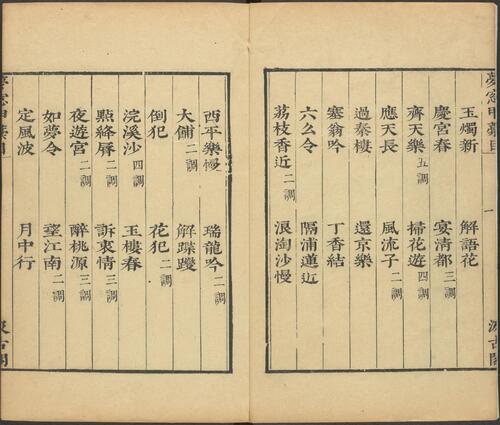 玉燭新 解語花
慶宮春 宴清都三調
齊天樂五調 掃花遊四調
應天長 風流子二調
過秦樓 還京樂
塞翁吟 丁香結
六幺令 隔浦蓮近
荔枝香近二調 浪淘沙慢
夢窗甲藁目 一 汲古閣
西平樂慢 瑞龍吟二調
大酺二調 解蹀躞
倒犯 花犯二調
浣溪沙四調 玉樓春
點絳脣二調 訴衷情三調
夜遊宮二調 醉桃源三調
如夢令 望江南二調
定風波 月中行
夢窗甲藁目 汲古閣